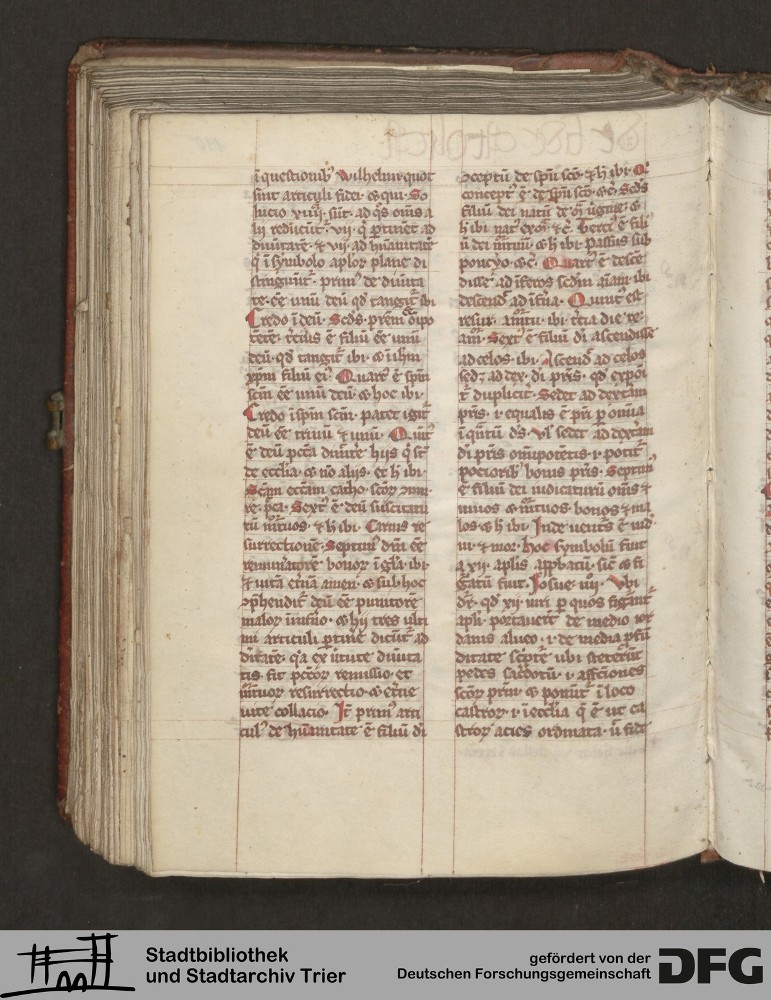 de fide catholica
i questionib Wilhelm quot
sint articuli fidei. & qui. So
lucio xiiij sūt. ad qs om̄s a
lij reducūt. vij. q ꝑtinēt ad
diuītatē. & vij ad hūanitatē
q ī symbolo aplor plane di
stīguūt. prim de diuīta
te. ēē unū deū qd tangit ibi
Credo ī deū. Scds. prem oīpo
tētē. tcius ē filiū ēē unū
deū. qd tangit ibi. & ī ihm
xpm filiū ei. Quart ē spm
scm ēē unū deū & hoc ibi.
Credo ī spm scm. patet igit
deū ēē trinū & unū. Quīt
ē deū pccā diuitē hiis q st
de ecclia. & nō aliis. et h ibi
Scam eccam catho. scor 9mu.
re. pca. Sext ē deū suscitatu
rū mrtuos. & h ibi. Carnis re
surrectionē. Septim dm ēē
remuatorē bonor ī gla. ibi
& uitā etnā amen. & sub hoc
9phendit deū ēē punitorē
malor ī inferno. & hii tres ulti
mi articuli ꝑtinē dicūt ad
ditatē. qa ex uirtute diuita
tis fit pccor remissio. et
mrtuor resurrectio & etne
uite collacio. It prim arti
cul de hūanitate ē filiū di
9ceptū de spu sco. & h ibi. Q
concept ē de spu sco. &c. Scds
filiū dei natū de
h ibi nat ex &c. Terci ē fili
ū dei mrtuū. & h ibi. passus sub
poncyo. &c. Quart ē desce
disse ad īferos scdm aīam. ibi
descend ad īfna. Quint est
resur ibi. tcia die re
Sext ē filiū di ascendisse
ad celos. ibi. Ascend ad celos
sed ad dex. di pris. qd expoi
t duplicit. Sedet ad dextam
pris. i. equalis ē pri ꝑ omīa
ī qntū ds. Vl sedet ad dextam
di pris omīpotētis. i. potit
pocioribus bonis pris. Septim
ē filiū dei iudicaturū omīs &
uiuos & mrtuos. bonos & ma
los. & h ibi. Inde uentus ē iud.
ui. & mor. hoc symbolū fuit
a xij. aplis approbatū. sic & fi
gatū fuit. Iosue iiij. Vbi
dr. qd xij uiri ꝑ quos figant
apli. portauert de medio ior
danis alueo. i. de media pfū
ditate scpte ubi steterūt
pedes sacdotū. i. affctiones
scor prm. & ponūt ī loco
castror. i. ī ecclia q ē ut ca
stror acies ordinata. ū fide
Stadtbibliothek
und Stadtarchiv Trier
gefördert von der
Deutschen Forschungsgemeinschaft
DFG